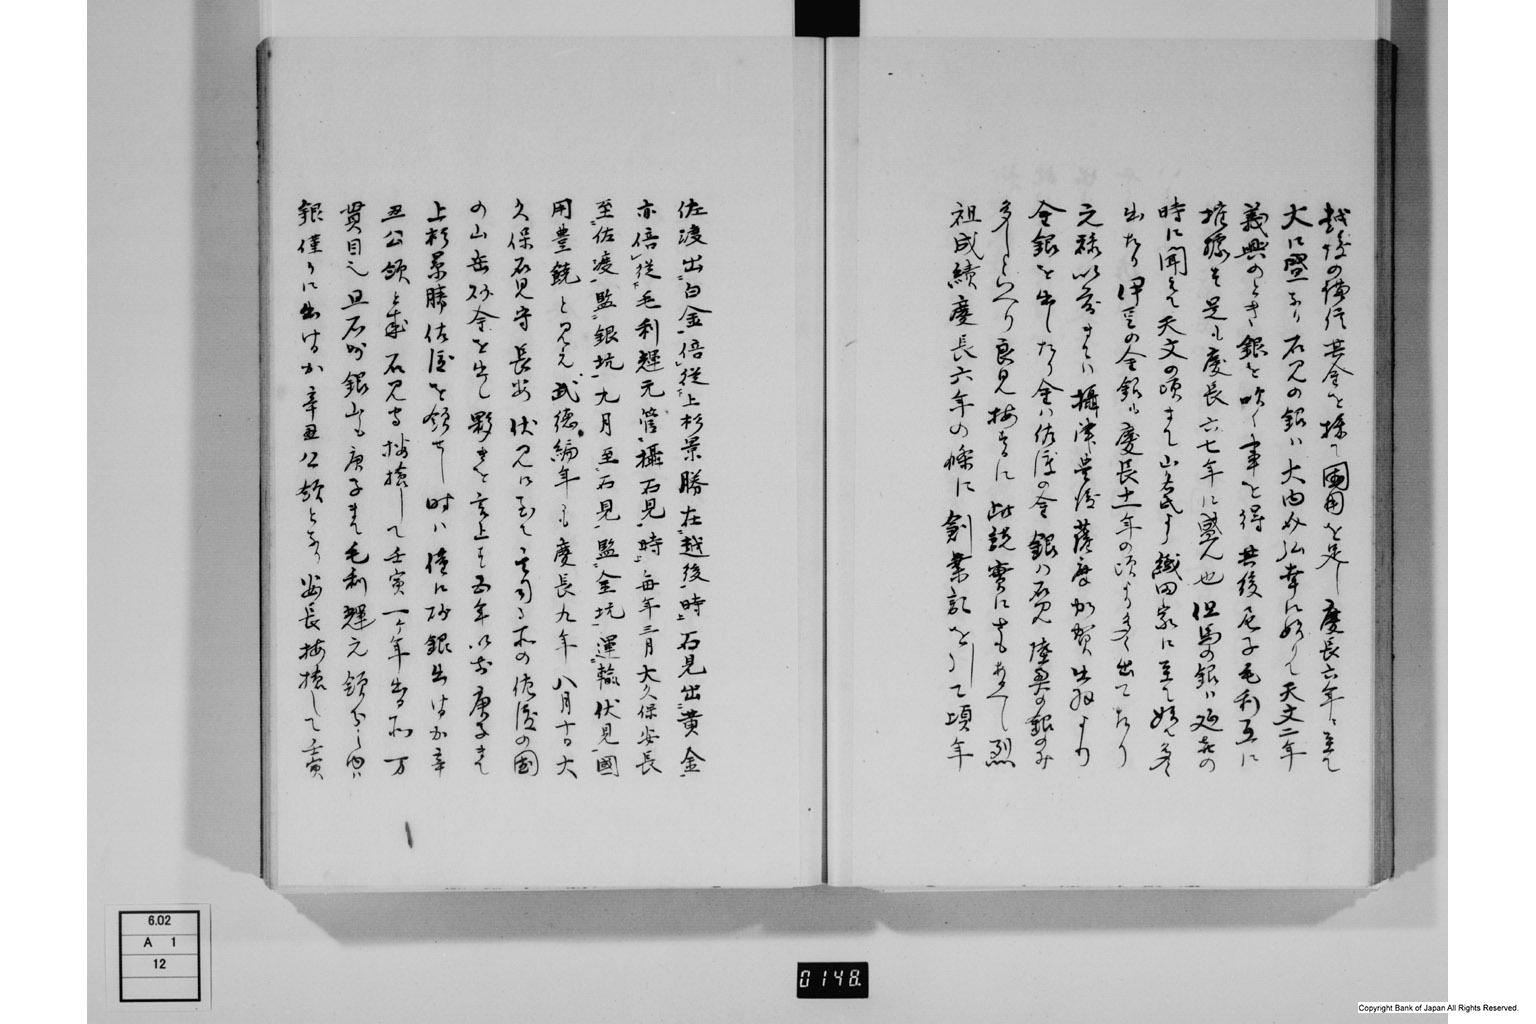 越後の佛經其金を採て國用を足し慶長六年に至て
大に盛なり石見の銀ハ大内
義興のとき銀を吹く事を得其後尼子毛利互に
據る是も慶長六七年に盛ん也但馬の銀ハ延喜の
時に聞えて天文の頃まて山名氏より織田家に至て
出たり伊豆の金銀も慶長十一年の頃より多く出てたり
元禄以前まてハ攝津豊後薩摩加賀出羽より
金銀を出したり金ハ佐渡の金銀ハ石見陸奥の銀のみ
多しといへり良見按するに此説實にさもあるへし烈
祖成績慶長六年の條に創業記を引て頃年
佐渡出白金倍従上杉景勝在越後時石見出黄金
亦倍従毛利輝元管攝石見時毎年三月大久保安長
至佐渡監銀坑九月至石見監金坑運輸伏見國
用豊饒と見え武徳編年にも慶長九年八月十日大
久保石見守長安伏見に於て言司る所の佐渡の國
の山岳砂金を出し夥きを言上す五年以前庚子まて
上杉景勝佐渡を領せし時ハ僅に砂銀出けるか辛
丑公領と成石見守按撿して壬寅一ヶ年出る所万
貫目也且石州銀山も庚子まて毛利輝元領たるの内ハ
銀僅かに出けるか辛丑公領となり安長按撿して壬寅
6.02
A 1
12
0148.
Copyright Bank of Japan All Rights Reserved.